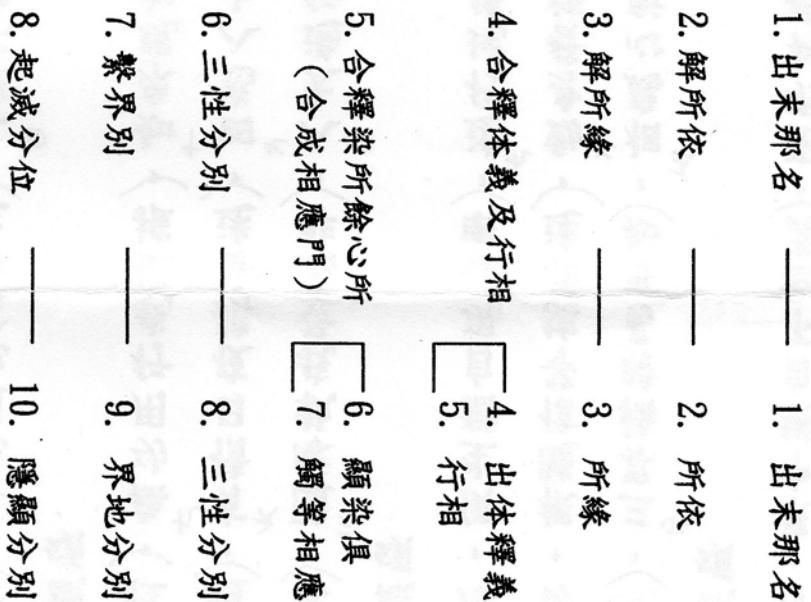 1. 出末那名 —— 1. 出末那名
2. 解所依 —— 2. 所依
3. 解所緣 —— 3. 所緣
4. 合釋体義及行相 4. 出体釋義
5. 行相
5. 合釋染所餘心所 6. 顯染俱
(合成相應門) 7. 觸等相應
6. 三性分別 —— 8. 三性分別
7. 繫界別 —— 9. 界地分別
8. 起滅分位 —— 10. 隱顯分別